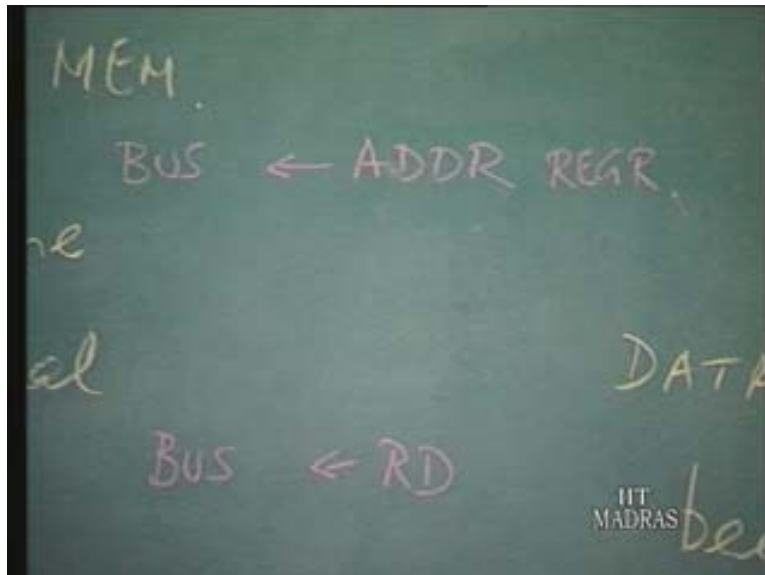 MEM.
BUS ← ADDR REGR.
DATA
BUS ← RD
IIT
MADRAS